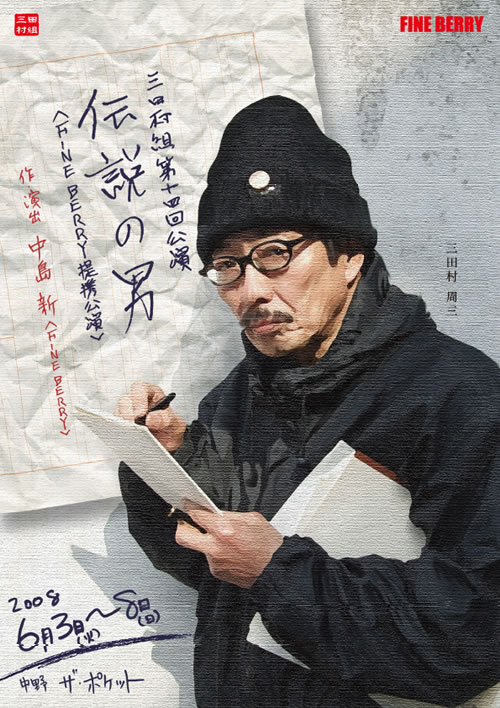 三田
村組
FINE BERRY
三田村組第十四回公演
伝説の男
〈FINE BERRY提携公演〉
作
演出 中島 新〈FINE BERRY〉
三田村 周三
2008
6月3日(火)〜8日(日)
中野 ザ・ポケット